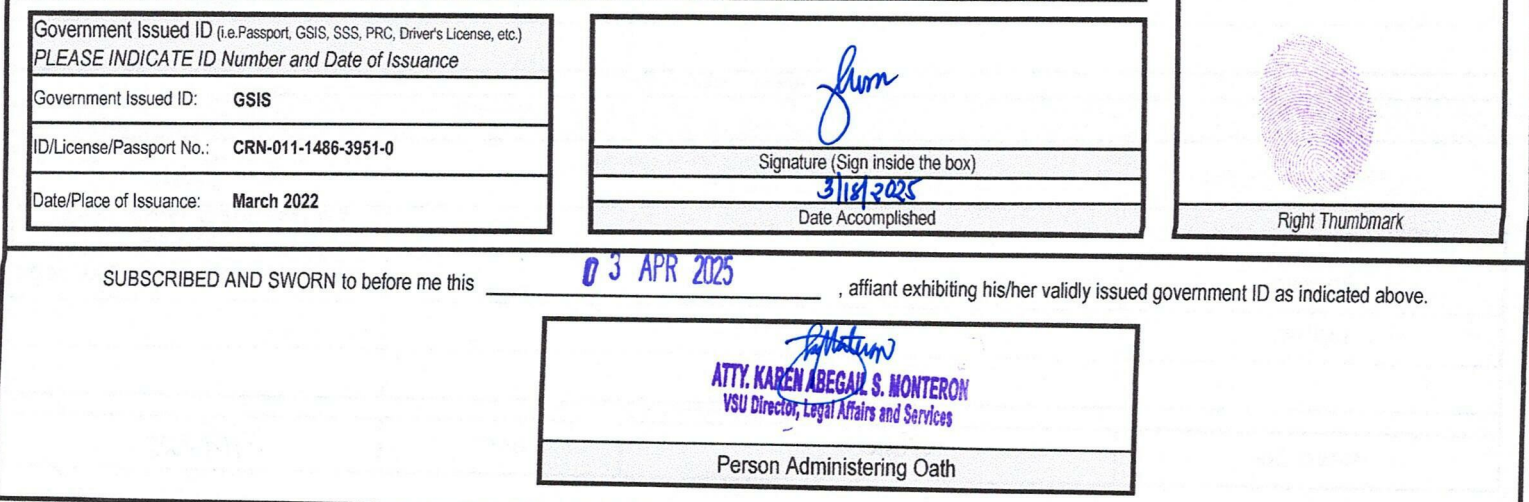 Government Issued ID (i.e.Passport, GSIS, SSS, PRC, Driver's License, etc.)
PLEASE INDICATE ID Number and Date of Issuance
Government Issued ID: GSIS
ID/License/Passport No.: CRN-011-1486-3951-0
Date/Place of Issuance: March 2022
Signature (Sign inside the box)
3/18/2025
Date Accomplished
Right Thumbmark
SUBSCRIBED AND SWORN to before me this 03 APR 2025 , affiant exhibiting his/her validly issued government ID as indicated above.
ATTY. KAREN ABEGAIL S. MONTERON
VSU Director, Legal Affairs and Services
Person Administering Oath